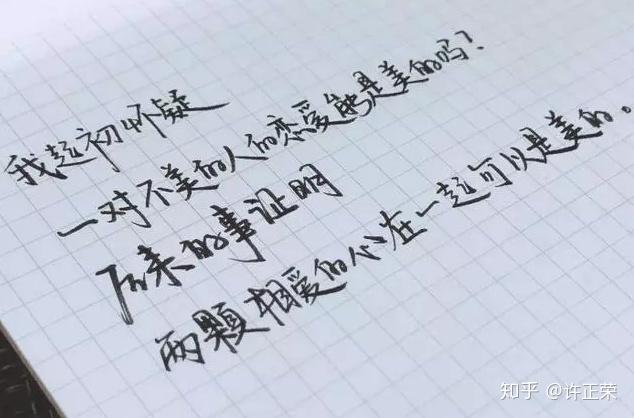 我起初怀疑
一对不美的人的恋爱能是美的吗？
后来的事证明
两顆相爱的心在一起可以是美的。
知乎 @许正荣